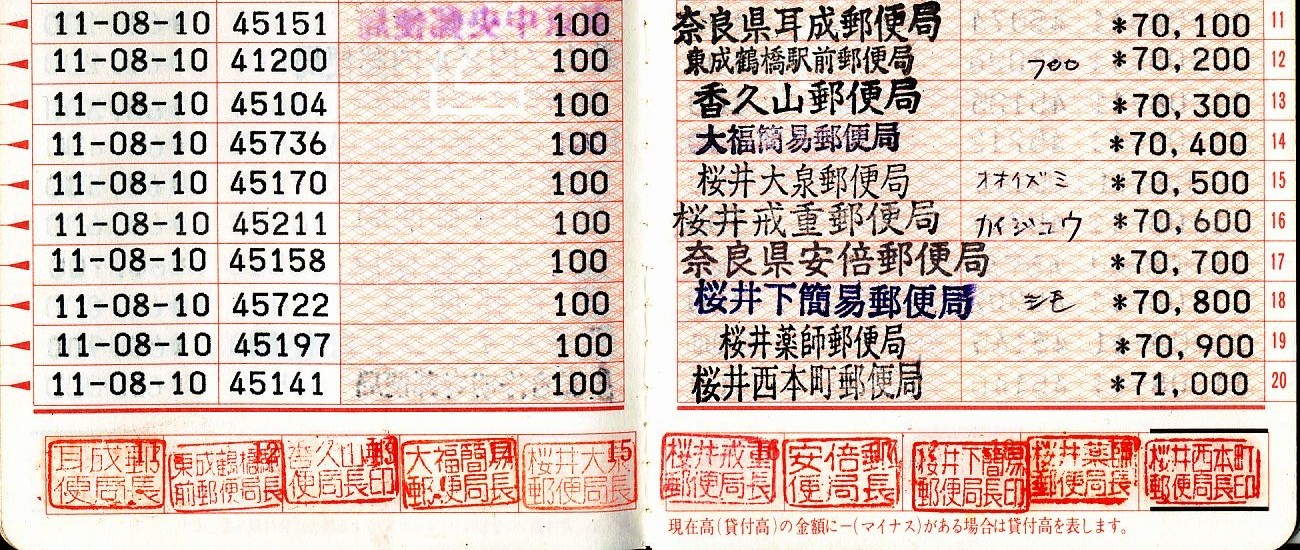 11-08-10 45151 100 奈良県耳成郵便局 *70,100 11
11-08-10 41200 100 東成鶴橋駅前郵便局 700 *70,200 12
11-08-10 45104 100 香久山郵便局 *70,300 13
11-08-10 45736 100 大福簡易郵便局 *70,400 14
11-08-10 45170 100 桜井大泉郵便局 オオイズミ *70,500 15
11-08-10 45211 100 桜井戒重郵便局 カイジュウ *70,600 16
11-08-10 45158 100 奈良県安倍郵便局 *70,700 17
11-08-10 45722 100 桜井下簡易郵便局 シモ *70,800 18
11-08-10 45197 100 桜井薬師郵便局 *70,900 19
11-08-10 45141 100 桜井西本町郵便局 *71,000 20
耳成郵便局長 11
東成鶴橋駅前郵便局長 12
香久山郵便局長印 13
大福簡易郵便局長
桜井大泉郵便局長 15
桜井戒重郵便局長 16
安倍郵便局長
桜井下簡易郵便局長印
桜井薬師郵便局長
桜井西本町郵便局長印
現在高(貸付高)の金額に-(マイナス)がある場合は貸付高を表します。